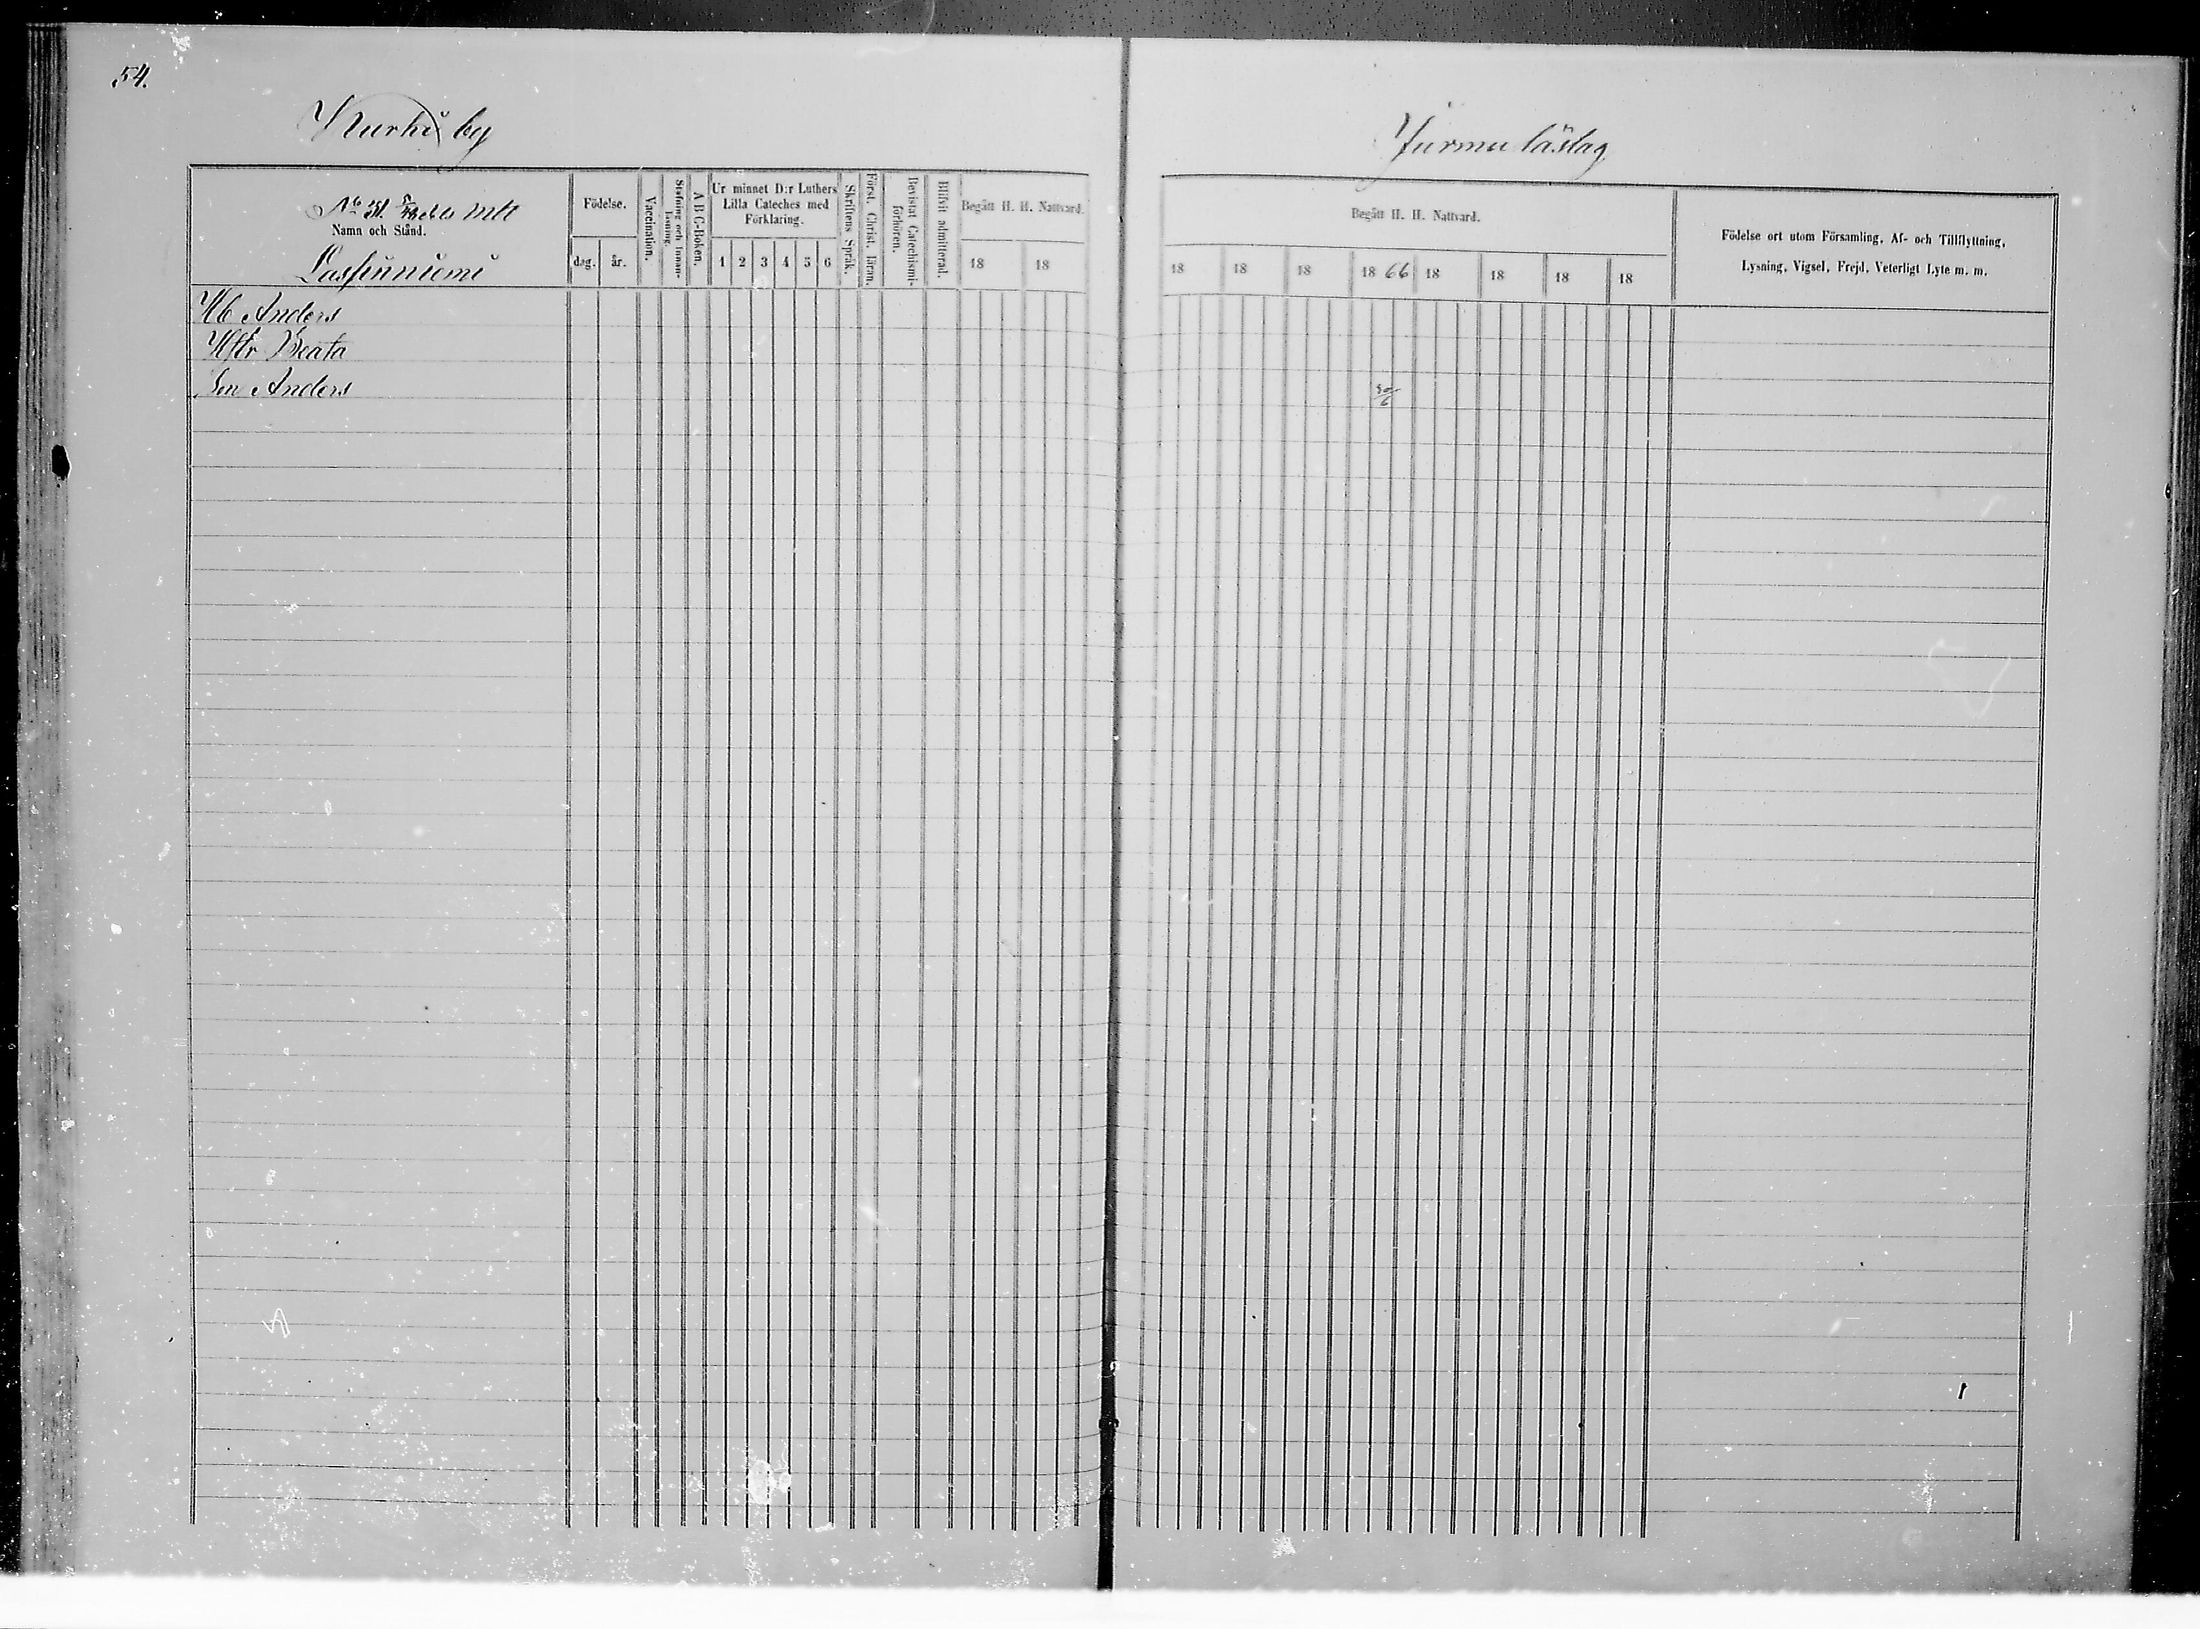 54.
Kurki by
Jurmu läslag
No 31. 5/48 mtl
Namn och Stånd.
Lassiniemi
Födelse.
dag. år.
Vaccination.
Stafning och Innan-läsning.
A B C-Boken.
Ur minnet D:r Luthers
Lilla Cateches med
Förklaring.
1 2 3 4 5 6
Skriftens Språk.
Först. Christ. läran.
Bevistat Catechismi-förhören.
Blifvit admitterad.
Begått H. H. Nattvard.
18 18
Begått H. H. Nattvard.
18 18 18 1866 18 18 18 18
Födelse ort utom Församling, Af- och Tillflyttning,
Lysning, Vigsel, Frejd, Veterligt Lyte m. m.
Anders
Hstr Beata
Son Anders 30/6